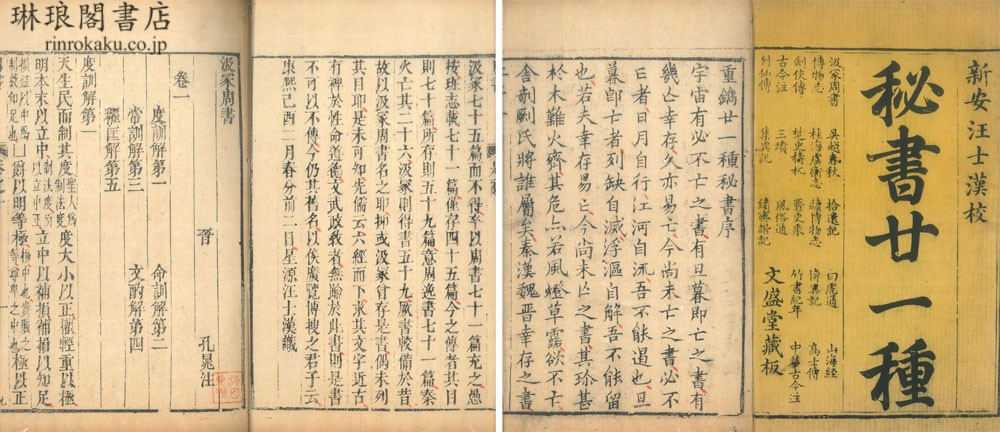 琳琅閣書店
rinrokaku.co.jp
新安汪士漢校
秘書廿一種
汲冢周書 吳越春秋 拾遺記 白虎通 山海經
博物志 桂海虞衡志 續博物志 博異記 高士傳
劍俠傳 楚史檮杌 晉史乘 竹書紀年 中華古今注
古今注 三墳 風俗通
列仙傳 集異記 續齊諧記
文盛堂藏板
重鐫廿一種秘書序
宇宙有必不亡之書有旦暮即亡之書有
幾亡幸存久亦易亡今尚未亡之書必不
亡者日月自行江河自流吾不能遏也旦
暮即亡者列缺自滅浮漚自解吾不能留
也若夫幸存易亡今尚未亡之書其珍甚
於木難火齊其危亦若風燈草露欲不亡
舍剞劂氏將誰屬矣秦漢魏晉幸存之書
汲冢七十五篇而不得卒以周書七十一篇充之愚
按班志載七十一篇僅存四十五篇今之傳者其目
則七十篇所存則五十九篇意周逸書七十一篇秦
火亡其二十六汲冢則得書五十九厥書較備於昔
故以汲冢周書名之耶抑或汲冢曾存是書偶未列
其目耶是未可知先儒云六經而下求其文字近古
有裨於性命道德文武政教者無踰於此書則是書
不可以不傳今仍其舊名以俟廣覽博搜之君子云
康熙己酉二月春分前二日星源汪士漢識
汲冢周書
卷一 晉 孔晁注
度訓解第一 命訓解第二
常訓解第三 文酌解第四
糴匡解第五
度訓解第一
天生民而制其度 度大小以正權輕重以極
明本末以立中 立中以補損補損以知足
爵以明等極 極以正